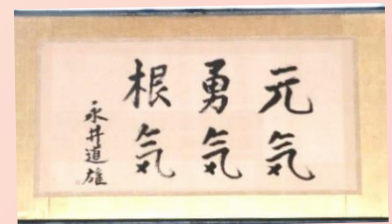 元気
勇気
根気
永井道雄